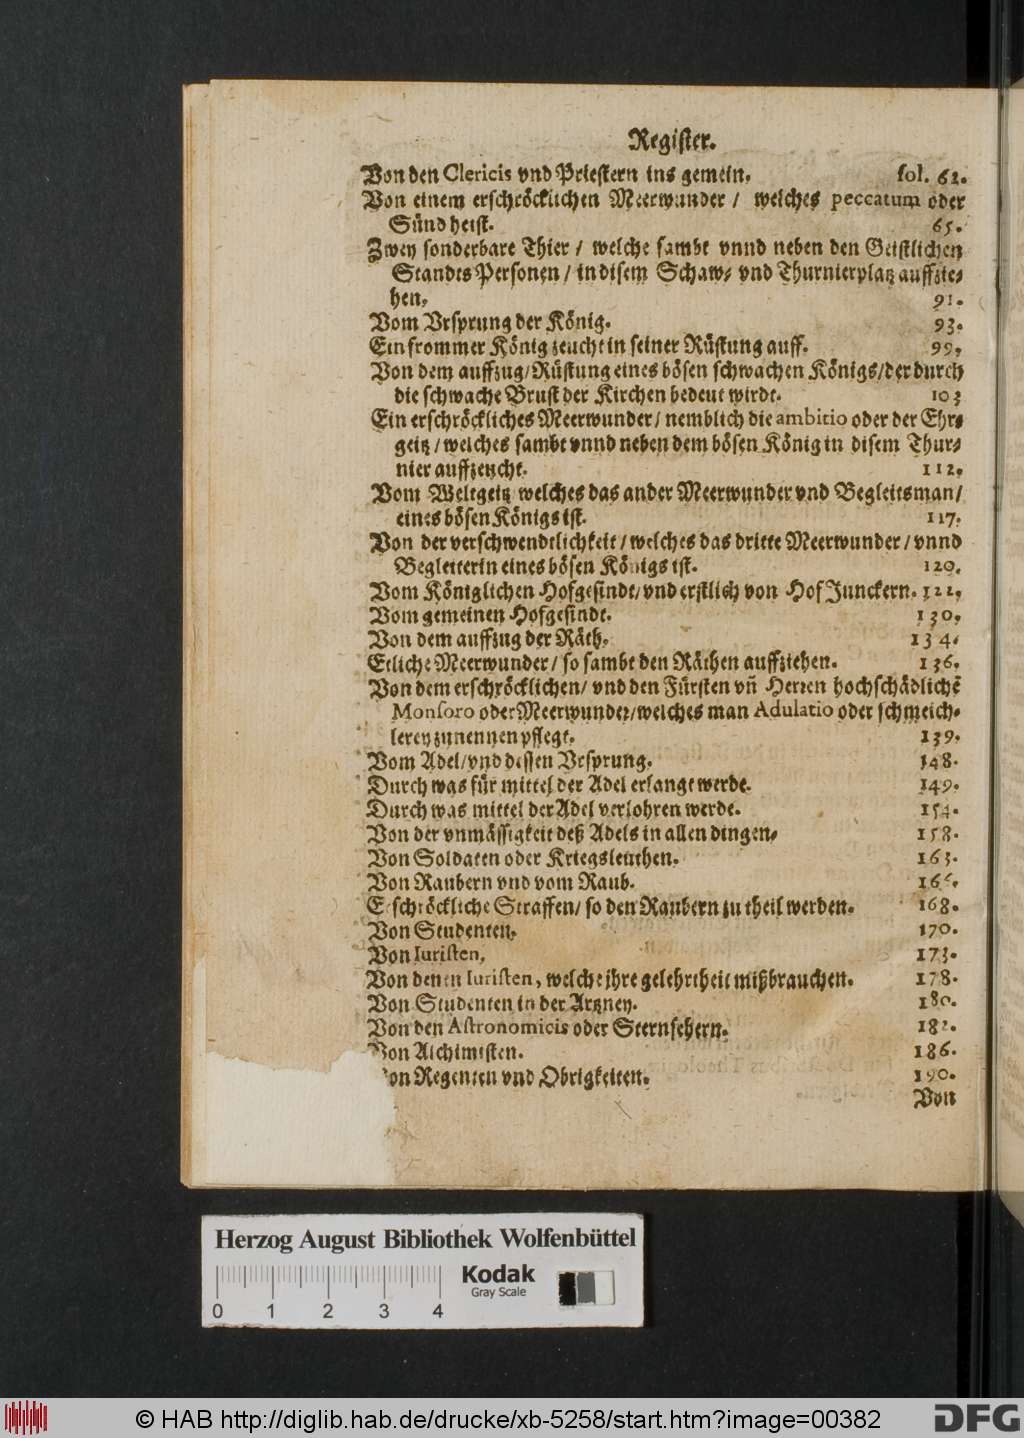 Register.
Von den Clericis vnd Priestern ins gemein, fol. 62.
Von einem erschröcklichen Meerwunder / welches peccatum oder
Sünd heist. 65.
Zwey sonderbare Thier / welche sambt vnnd neben den Geistlichen
Standts Personen / in disem Schaw- vnd Thurnierplatz auffzie-
hen, 91.
Vom Vrsprung der König. 93.
Ein frommer König zeucht in seiner Rüstung auff. 99.
Von dem auffzug / Rüstung eines bösen schwachen Königs / der durch
die schwache Brust der Kirchen bedeut wirdt. 103
Ein erschröckliches Meerwunder / nemblich die ambitio oder der Ehr-
geitz / welches sambt vnnd neben dem bösen König in disem Thur-
nier auffzeucht. 112.
Vom Weltgeitz welches das ander Meerwunder vnd Begleitsman /
eines bösen Königs ist. 117.
Von der verschwendtlichkeit / welches das dritte Meerwunder / vnnd
Begleiterin eines bösen Königs ist. 120.
Vom Königlichen Hofgesindt / vnd erstlich von Hof Junckern. 122.
Vom gemeinen Hofgesindt. 130.
Von dem auffzug der Räth. 134.
Etliche Meerwunder / so sambt den Räthen auffziehen. 136.
Von dem erschröcklichen / vnd den Fürsten vñ Herren hochschädlichẽ
Monsoro oder Meerwunder / welches man Adulatio oder schmeich-
lerey zunennen pflegt. 139.
Vom Adel / vnd dessen Vrsprung. 148.
Durch was für mittel der Adel erlangt werde. 149.
Durch was mittel der Adel verlohren werde. 154.
Von der vnmässigkeit deß Adels in allen dingen. 158.
Von Soldaten oder Kriegsleuthen. 163.
Von Raubern vnd vom Raub. 166.
Erschröckliche Straffen / so den Raubern zu theil werden. 168.
Von Studenten. 170.
Von Iuristen. 173.
Von denen Iuristen, welche jhre gelehrtheit mißbrauchen. 178.
Von Studenten in der Artzney. 180.
Von den Astronomicis oder Sternsehern. 182.
Von Alchimisten. 186.
Von Regenten vnd Obrigkeiten. 190.
Von
Herzog August Bibliothek Wolfenbüttel
Kodak
Gray Scale
0 1 2 3 4
© HAB http://diglib.hab.de/drucke/xb-5258/start.htm?image=00382
DFG